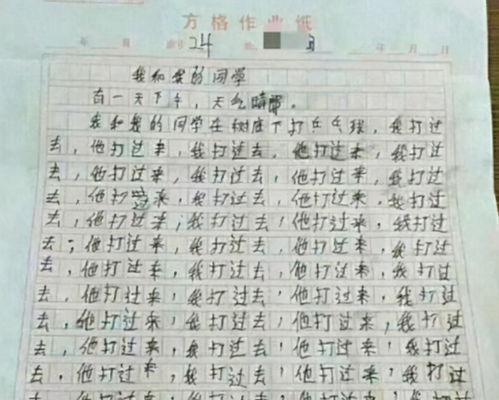 方格作业纸
年 月 24 年 月 日
我和我的同学
有一天下午，天气晴朗。
我和我的同学在树底下打乒乓球，我打过
去，他打过来，我打过去，他打过来，我打过
去，他打过来，我打过去，他打过来，我打过
去，他打过来，我打过去，他打过来，我打过
去，他打过来，我打过去，他打过来，我打过
去，他打过来，我打过去，他打过来，我打过
去，他打过来，我打过去，他打过来，我打过
去，他打过来，我打过去，他打过来，我打过
去，他打过来，我打过去，他打过来，我打过
去，他打过来，我打过去，他打过来，我打过
去，他打过来，我打过去，他打过来，我打过
去，他打过来，我打过去，他打过来，我打过